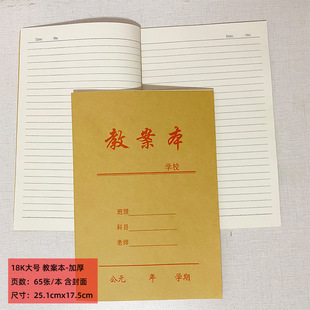 Date: No.
Date: No.
教案本
学校
班级
科目
老师
公元 年 学期
18K大号 教案本-加厚
页数：65张/本 含封面
尺寸：25.1cmx17.5cm